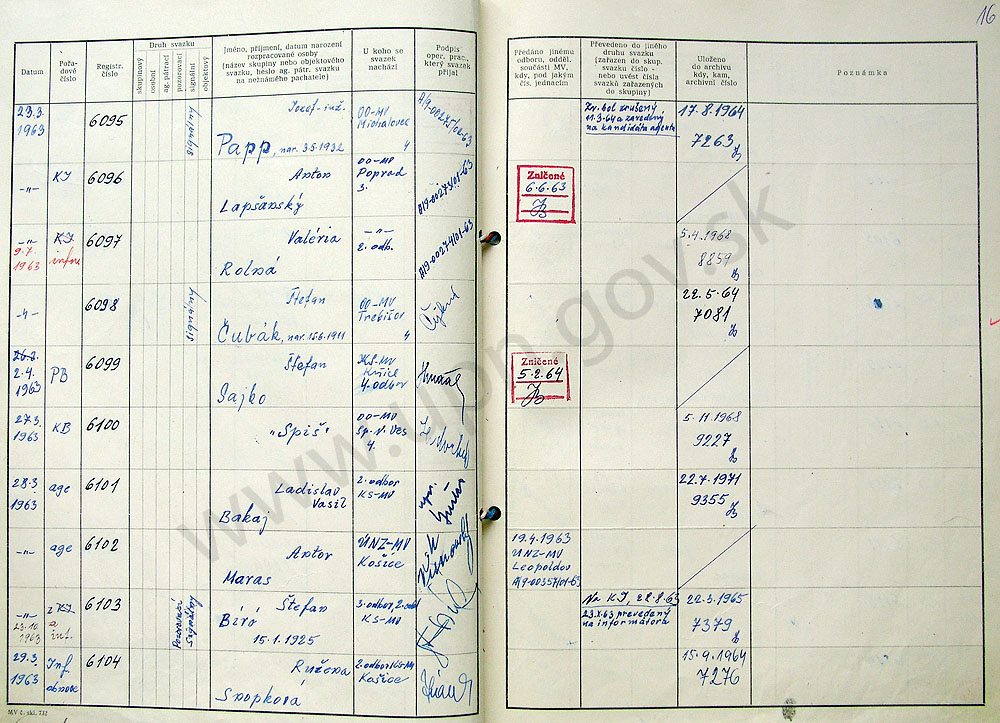 16
Datum
Pořadové číslo
Registr. číslo
Druh svazku
skupinový
osobní
ag. pátrací
pozorovací
signální
objektový
Jméno, příjmení, datum narození
rozpracované osoby
(název skupiny nebo objektového
svazku, heslo ag. pátr. svazku
na neznámého pachatele)
U koho se
svazek
nachází
Podpis
oper. prac.,
který svazek
přijal
Předáno jinému
odboru, odděl.
součásti MV,
kdy, pod jakým
čís. jednacím
Převedeno do jiného
druhu svazku
(zařazen do skup.
svazku číslo -
nebo uvést čísla
svazků zařazených
do skupiny)
Uloženo
do archivu
kdy, kam,
archivní číslo
Poznámka
23.3.
1963
6095
signálny
Jozef - inž.
Papp, nar. 3.5.1932
OO-MV
Michalovce
4
A/9-00275/01-63
Zv. bol zrušený
11.3.64 a zavedený
na kandidáta agenta
17.8.1964
7263
-„-
KI
6096
Anton
Lapšanský
OO-MV
Poprad
3.
A/9-00273/01-63
Zničené
6.6.63
-„-
9.7.
1963
KI
6097
Valéria
Rolná
-„-
2. odb.
A/9-00274/01-63
5.4.1968
8259
-„-
6098
signálny
Štefan
Čubák, nar. 15.6.1911
OO-MV
Trebišov
4
22.5.64
7081
26.2.
2.4.
1963
PB
6099
Štefan
Sajko
KS-MV
Košice
4. odbor
Zničené
5.2.64
27.3.
1963
KB
6100
"Spiš"
OO-MV
Sp. N. Ves
4.
5.11.1968
9227
28.3.
1963
age
6101
Ladislav
Vasil
Bakaj
2. odbor
KS-MV
22.7.1971
9355
-„-
age
6102
Anton
Maras
ÚNZ-MV
Košice
19.4.1963
ÚNZ-MV
Leopoldov
A/9-00357/01-63
-„-
23.10.
1963
6103
signálny
Štefan
Bíró
15.1.1925
3. odbor, 2. odd
KS-MV
Na KI, 22.8.63
23.X.63 prevedený
na informátora
22.3.1965
7379
29.3.
1963
Inf.
obnove
6104
Ružena
Snopková
2. odbor KS-MV
Košice
15.9.1964
7276
MV č. skl. 732
www.upn.gov.sk